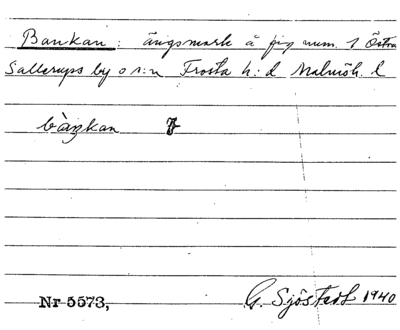 Bankan: ängsmark å fig num. 1 Östra
Sallerups by o s:n Frosta h:d Malmöh. l
bàŋkan
Nr 5573,
G. Sjöstedt 1940